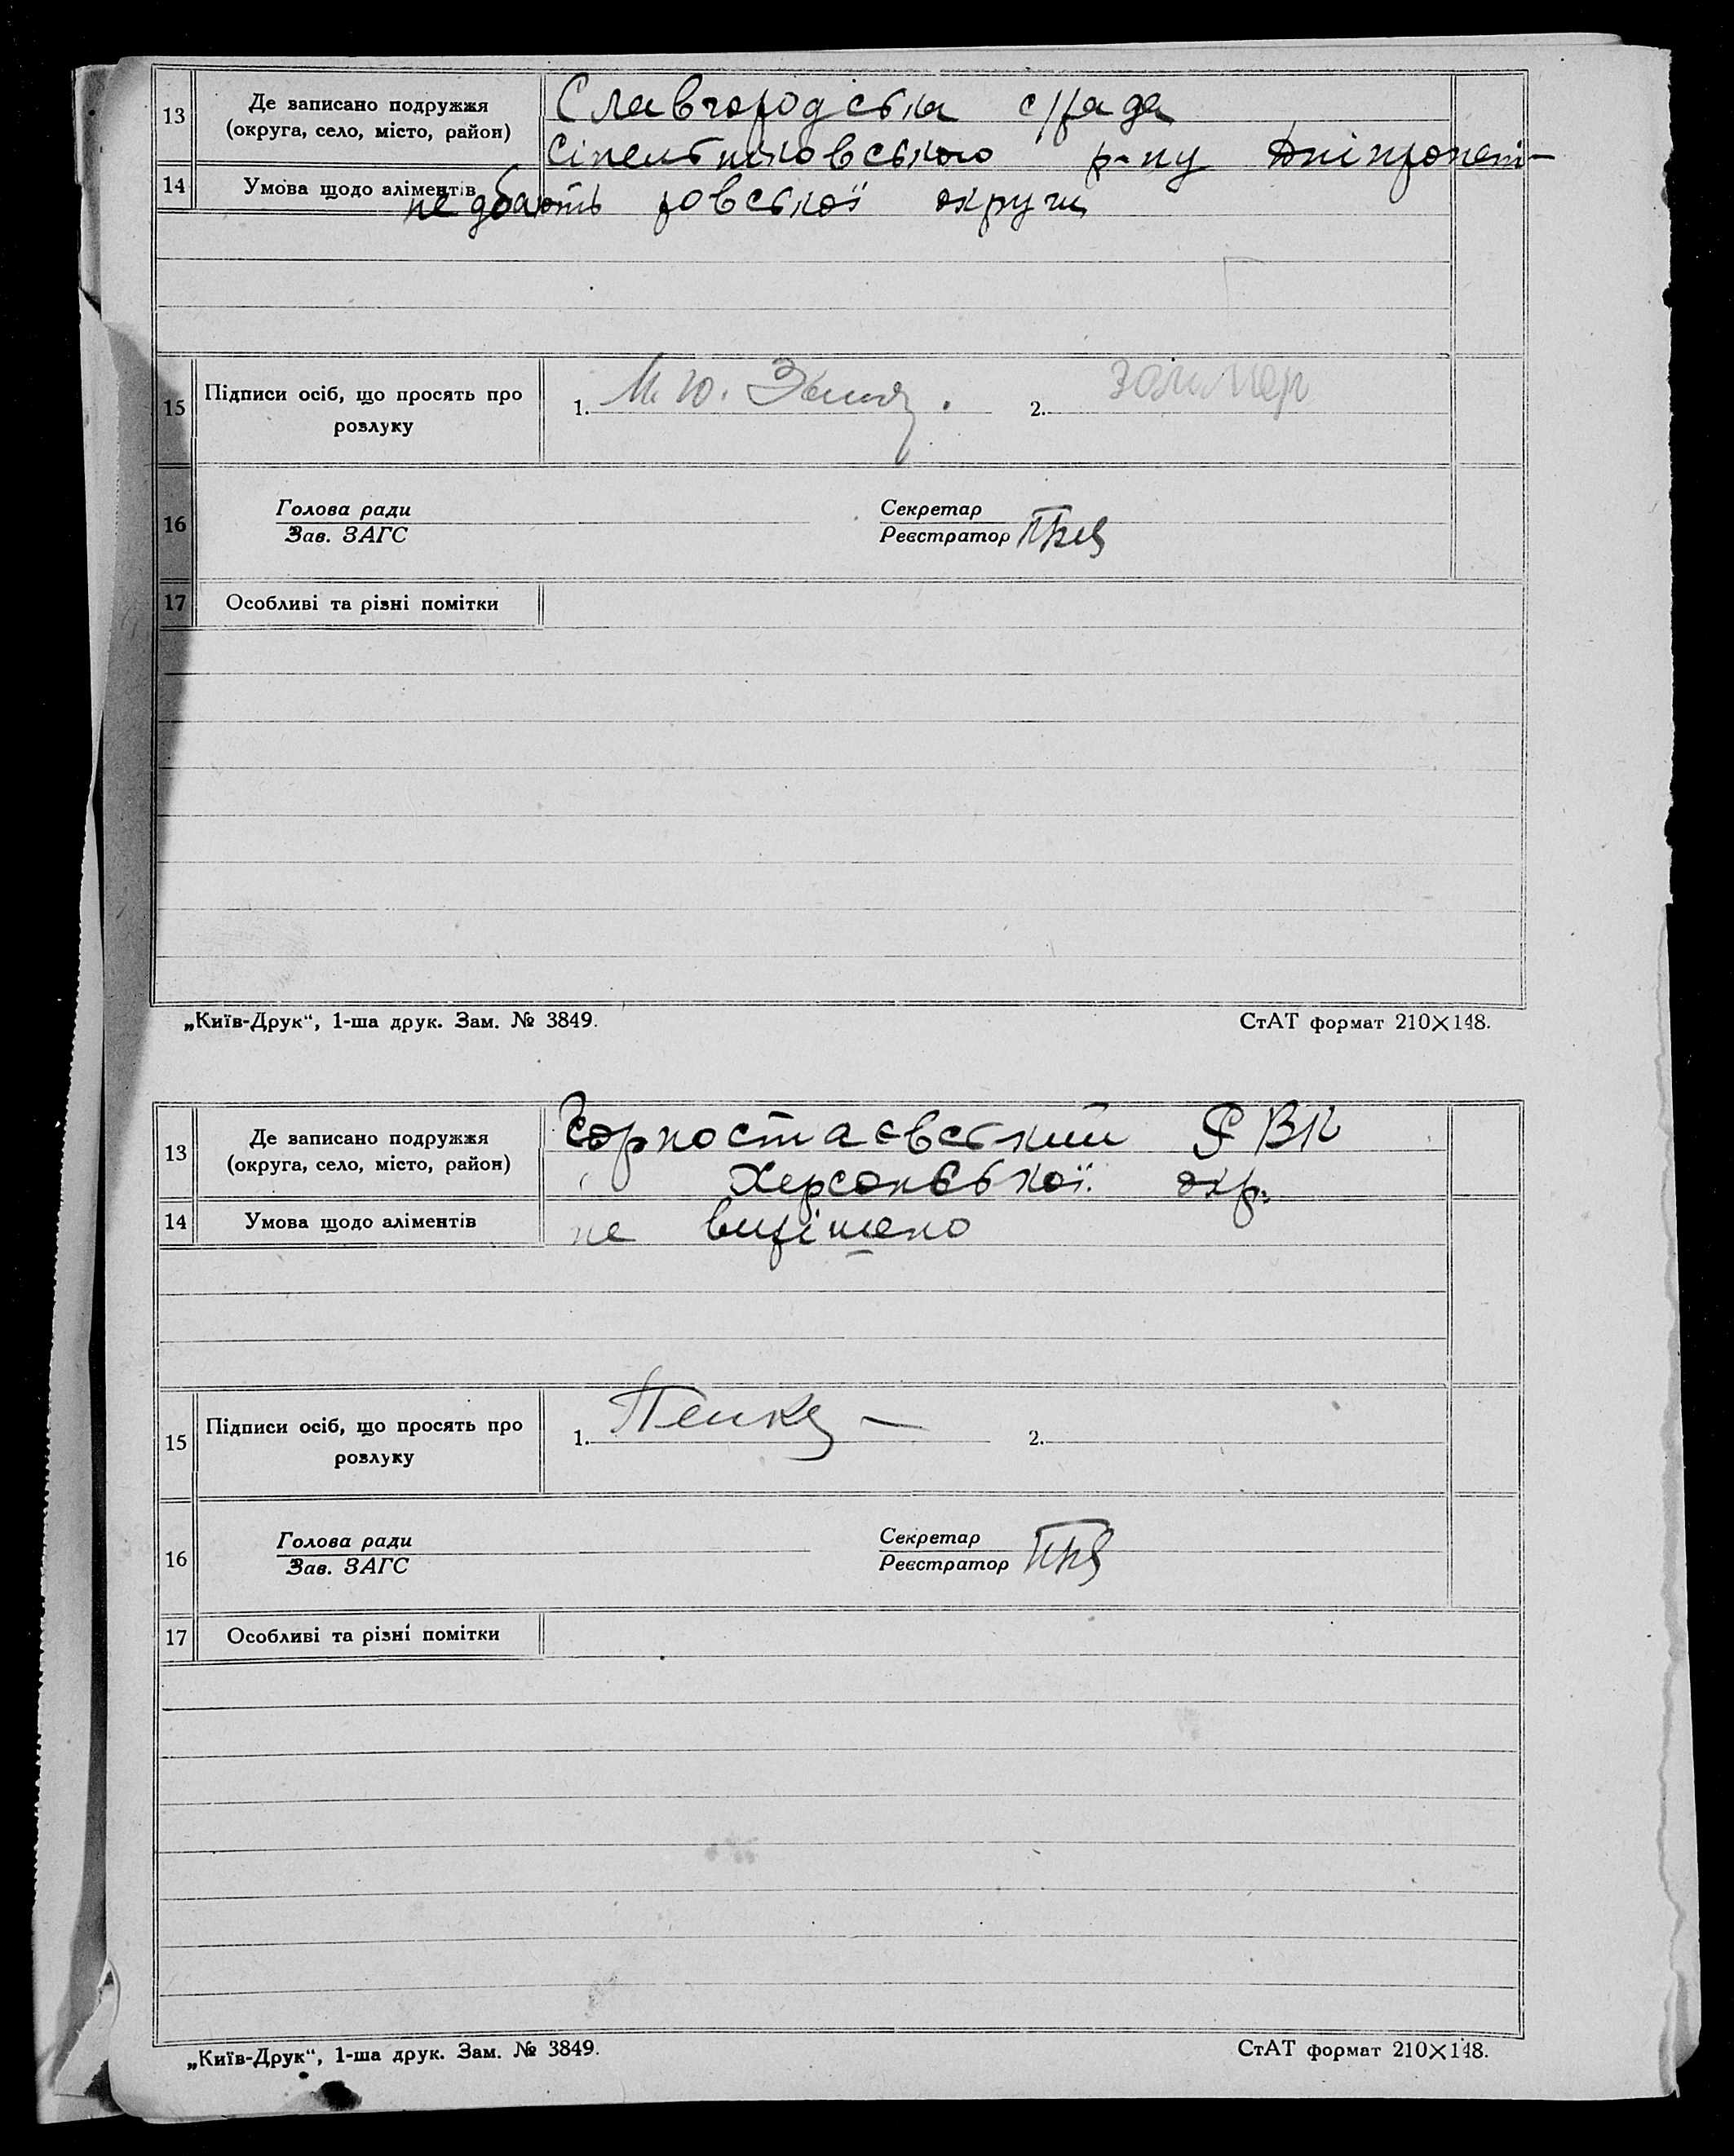 13 Де записано подружжя Славгородська с/рада
(округа, село, місто, район) Сінельниковського р-ну Дніпропет-
14 Умова щодо аліментів
не дбають ровської округи
15 Підписи осіб, що просять про розлуку 1. М. Ю. 2.
16 Голова ради Секретар
Зав. ЗАГС Реєстратор
17 Особливі та різні помітки
„Київ-Друк“, 1-ша друк. Зам. № 3849. СтАТ формат 210×148.
13 Де записано подружжя Горностаєвський РВК
(округа, село, місто, район) Херсонської окр.
14 Умова щодо аліментів не вирішено
15 Підписи осіб, що просять про розлуку 1. 2.
16 Голова ради Секретар
Зав. ЗАГС Реєстратор
17 Особливі та різні помітки
„Київ-Друк“, 1-ша друк. Зам. № 3849. СтАТ формат 210×148.